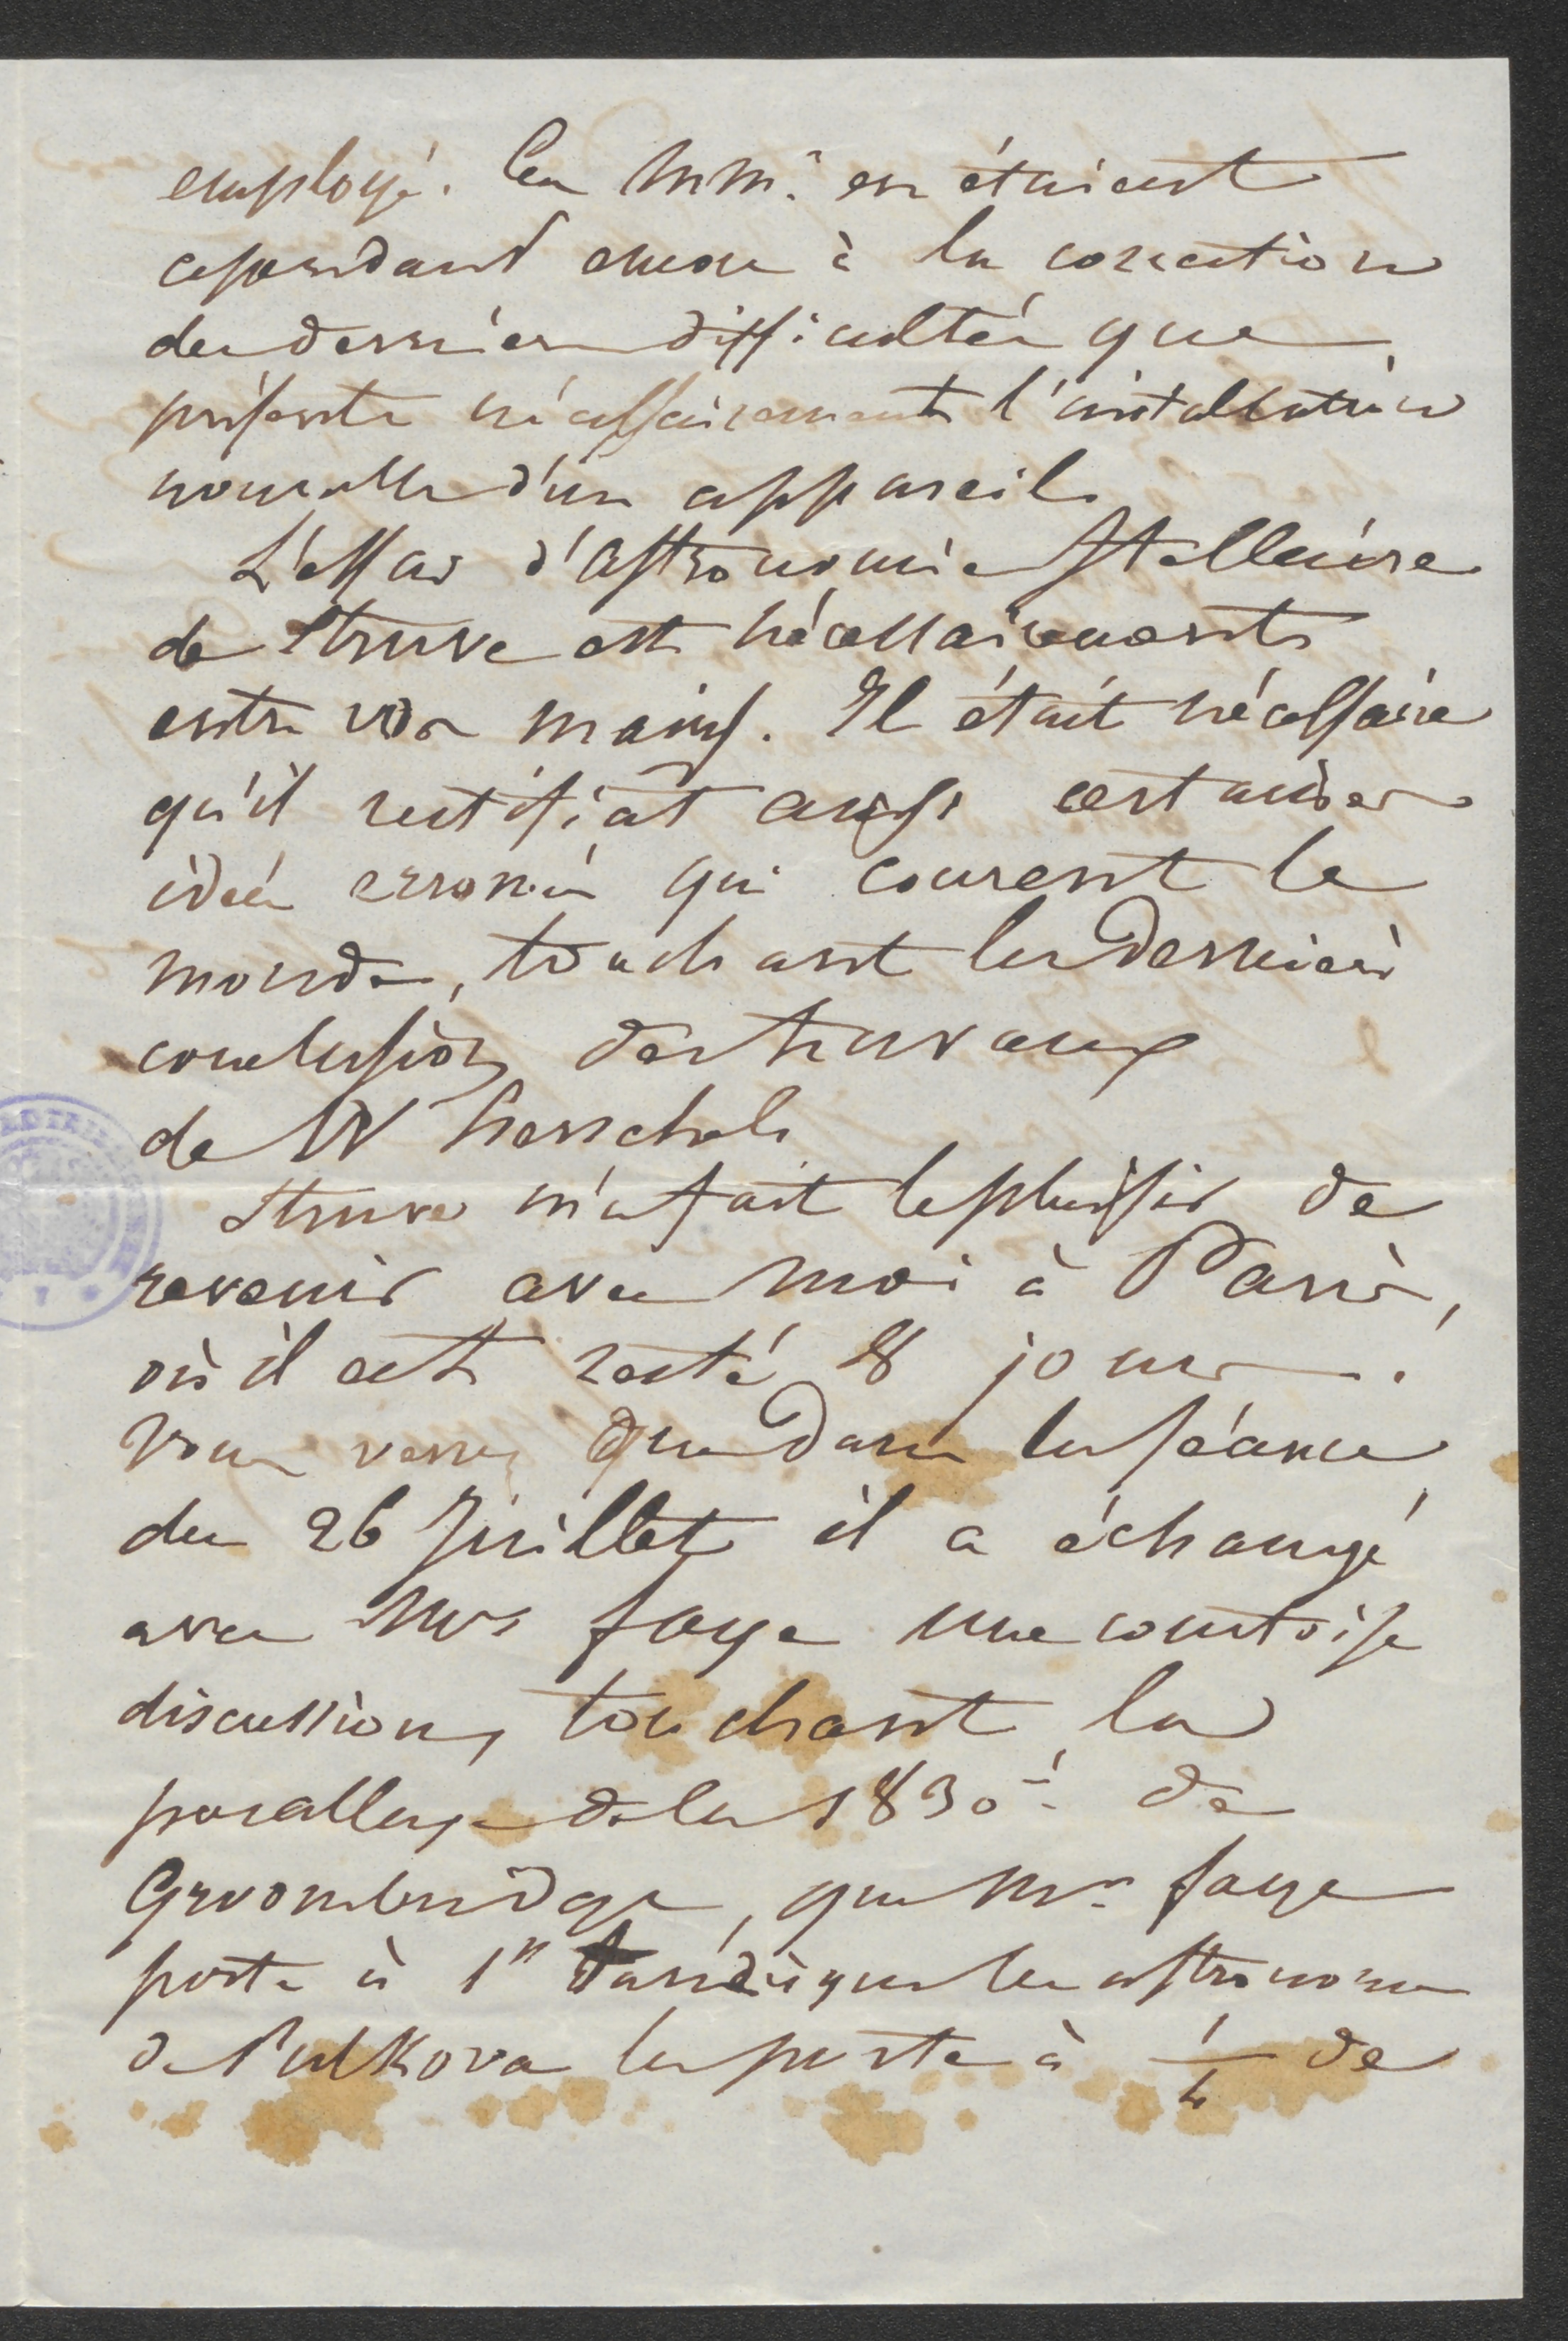 employé. Ces MM.rs en étaient
cependant encore à la correction
des dernières difficultés que
présente nécessairement l'installation
nouvelle d'un appareil.
L'essai d'astronomie stellaire
de Struve est nécessairement
entre vos mains. Il était nécessaire
qu'il rectifiât aussi certaines
idées erronées qui courent le
monde, touchant les dernières
conclusions des travaux
de W Herschel.
Struve m'a fait le plaisir de
revenir avec moi à Paris,
où il est resté 8 jours.
Vous verrez que dans la séance
du 26 Juillet il a échangé
avec Mr Faye une courtoise
discussion, touchant la
parallaxe de la 1830e de
Groombridge, que Mr. Faye
porte à 1" tandis que les astronomes
de Pulkova la porte à 1/4 de